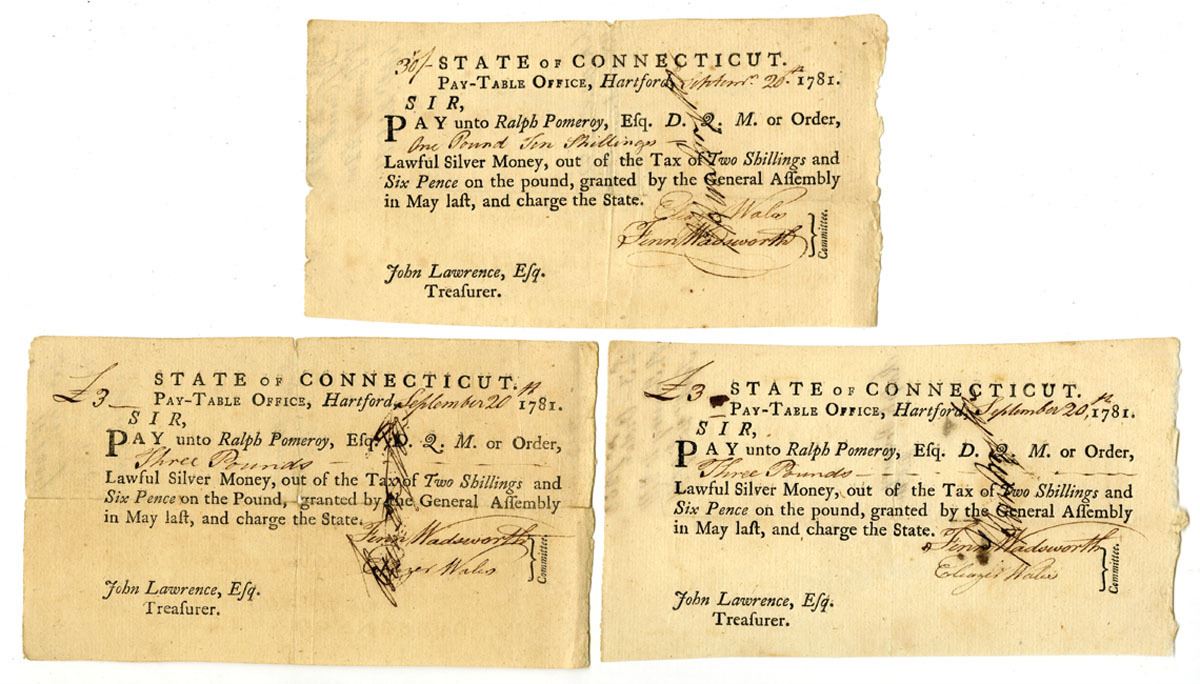 30/- STATE OF CONNECTICUT.
PAY-TABLE OFFICE, Hartford, Septemr. 20.th 1781.
SIR,
PAY unto Ralph Pomeroy, Eſq. D. Q. M. or Order,
One Pound Ten Shillings
Lawful Silver Money, out of the Tax of Two Shillings and
Six Pence on the pound, granted by the General Aſſembly
in May laſt, and charge the State.
Eleazr Wales
Fenn Wadsworth
Committee.
John Lawrence, Eſq.
Treaſurer.
£3 STATE OF CONNECTICUT.
PAY-TABLE OFFICE, Hartford, September 20th 1781.
SIR,
PAY unto Ralph Pomeroy, Eſq. D. Q. M. or Order,
Three Pounds
Lawful Silver Money, out of the Tax of Two Shillings and
Six Pence on the Pound, granted by the General Aſſembly
in May laſt, and charge the State.
Fenn Wadsworth
Eleazer Wales
Committee.
John Lawrence, Eſq.
Treaſurer.
£3 STATE OF CONNECTICUT.
PAY-TABLE OFFICE, Hartford, September 20th, 1781.
SIR,
PAY unto Ralph Pomeroy, Eſq. D. Q. M. or Order,
Three Pounds
Lawful Silver Money, out of the Tax of Two Shillings and
Six Pence on the pound, granted by the General Aſſembly
in May laſt, and charge the State.
Fenn Wadsworth
Eleazer Wales
Committee.
John Lawrence, Eſq.
Treaſurer.